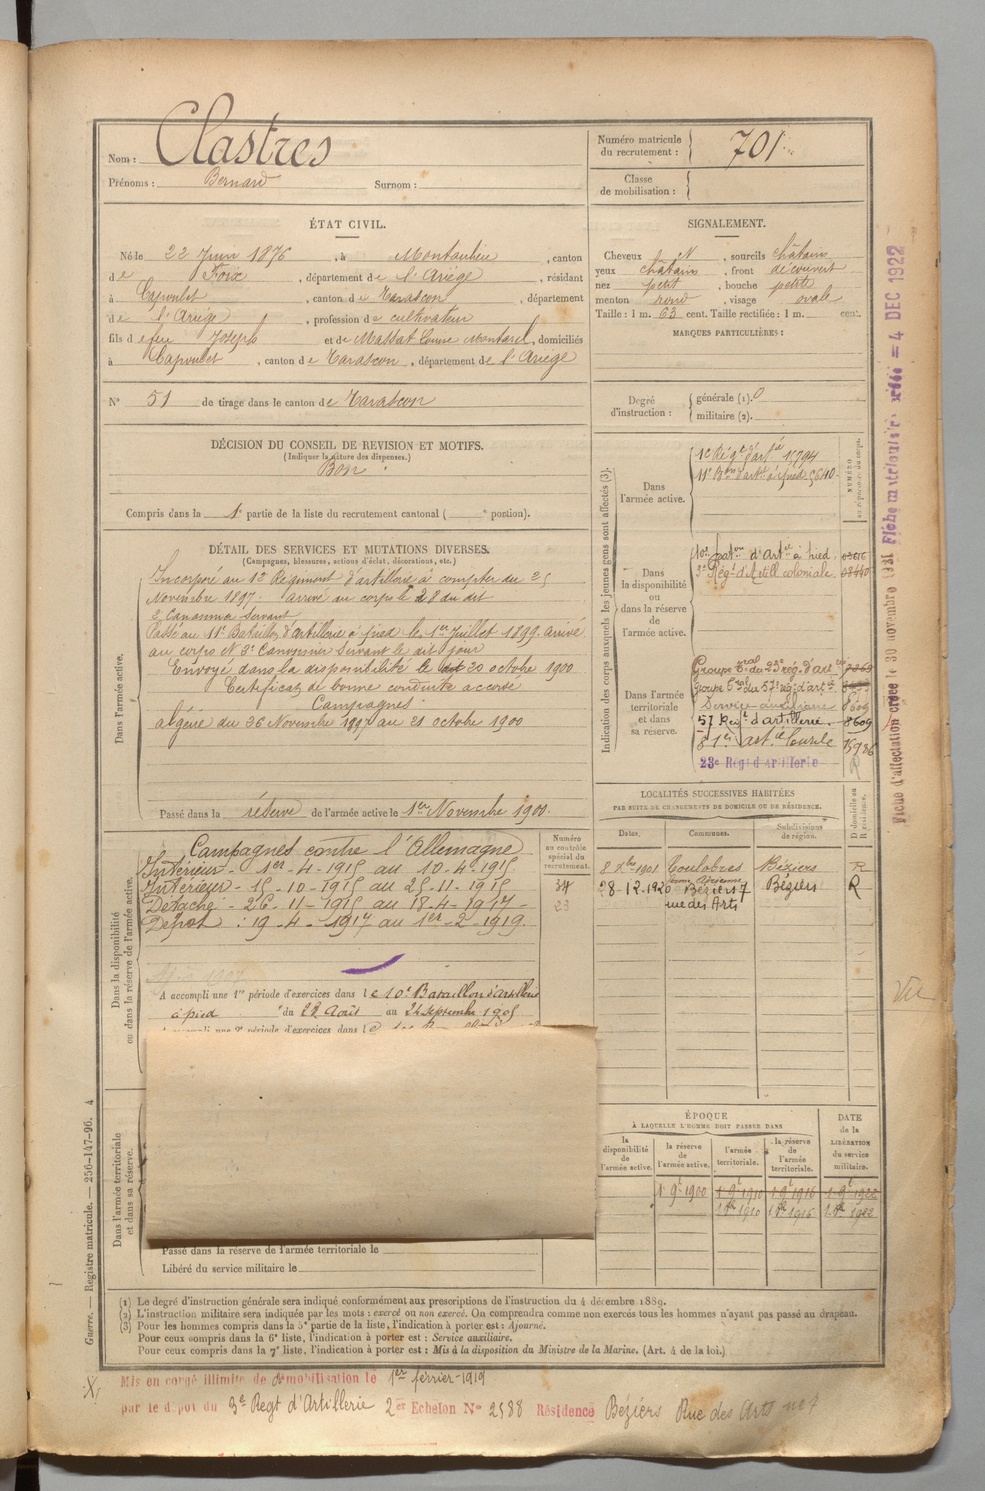 Nom : Clastres
Prénoms : Bernard Surnom :
Numéro matricule du recrutement : 701
Classe de mobilisation :
ÉTAT CIVIL.
Né le 22 Juin 1876, à Montoulieu, canton
de Foix, département de l'Ariège, résidant
à Capoulet, canton de Tarascon, département
de l'Ariège, profession de cultivateur
fils de feu Joseph et de Massat domiciliés
à Capoulet, canton de Tarascon, département de l'Ariège
N° 51 de tirage dans le canton de Tarascon
SIGNALEMENT.
Cheveux N, sourcils châtain
yeux châtain, front découvert
nez petit, bouche petite
menton rond, visage ovale
Taille : 1 m. 63 cent. Taille rectifiée : 1 m. cent.
MARQUES PARTICULIÈRES :
Degré d'instruction : générale (1). 0
militaire (2).
DÉCISION DU CONSEIL DE REVISION ET MOTIFS.
(Indiquer la nature des dispenses.)
Bon
Compris dans la 1e partie de la liste du recrutement cantonal ( portion).
DÉTAIL DES SERVICES ET MUTATIONS DIVERSES.
(Campagnes, blessures, actions d'éclat, décorations, etc.)
Dans l'armée active.
Incorporé au 12 Régiment d'artillerie à compter du 25
Novembre 1897. Arrivé au corps le 28 du dit
2e Canonnier Servant
Passé au 11e Bataillon d'artillerie à pied le 1er Juillet 1899. arrivé
au corps N 3e Canonnier Servant le dit jour
Envoyé dans la disponibilité le 20 octobre 1900
Certificat de bonne conduite accordé
Campagnes
algérie du 26 Novembre 1897 au 21 octobre 1900
Passé dans la réserve de l'armée active le 1er Novembre 1900.
Indication des corps auxquels les jeunes gens sont affectés (3).
NUMÉRO
Dans l'armée active.
12 Régt d'artie 11794
11e Bon d'artie à pied 5640
Dans la disponibilité ou dans la réserve de l'armée active.
10e baton d'Artie à pied
3e Régt d'Artill coloniale
Dans l'armée territoriale et dans sa réserve.
Groupe du 23e rég. d'art
Groupe du 57e rég. d'art
Service auxiliaire
57 Regt d'artillerie. 8609
81e art. lourde
23e Régt d'Artillerie
LOCALITÉS SUCCESSIVES HABITÉES
PAR SUITE DE CHANGEMENTS DE DOMICILE OU DE RÉSIDENCE.
Dates. Communes. Subdivisions de région. D domicile ou R résidence.
8 Xbre 1901 Toulobres Béziers R
28-12-1920 Béziers 7 rue des Arts Béziers R
Dans la disponibilité ou dans la réserve de l'armée active.
Numéro au contrôle spécial du recrutement.
34
23
Campagnes contre l'Allemagne
Intérieur - 1er - 4 - 1915 au 10 - 4 - 1915
Intérieur - 15 - 10 - 1915 au 25 - 11 - 1915
Détaché - 26 - 11 - 1915 au 18 - 4 - 1917 -
Dépôt : 19 - 4 - 1917 au 1er - 2 - 1919.
A accompli une 1re période d'exercices dans le 10e Bataillon d'artillerie
à pied du 28 Août au 24 Septembre 1905
Dans l'armée territoriale et dans sa réserve.
Passé dans la réserve de l'armée territoriale le
Libéré du service militaire le
ÉPOQUE
À LAQUELLE L'HOMME DOIT PASSER DANS
la disponibilité de l'armée active.
la réserve de l'armée active.
l'armée territoriale.
la réserve de l'armée territoriale.
DATE de la LIBÉRATION du service militaire.
1 9e 1900 1 9e 1910 1 9e 1916 1 9e 1922
1910 1916 1922
(1) Le degré d'instruction générale sera indiqué conformément aux prescriptions de l'instruction du 4 décembre 1889.
(2) L'instruction militaire sera indiquée par les mots : exercé ou non exercé. On comprendra comme non exercés tous les hommes n'ayant pas passé au drapeau.
(3) Pour les hommes compris dans la 5e partie de la liste, l'indication à porter est : Ajourné.
Pour ceux compris dans la 6e liste, l'indication à porter est : Service auxiliaire.
Pour ceux compris dans la 7e liste, l'indication à porter est : Mis à la disposition du Ministre de la Marine. (Art. 4 de la loi.)
Mis en congé illimité de démobilisation le 1er février-1919
par le dépôt du 3e Regt d'Artillerie 2er Echelon N° 2588 Résidence Béziers Rue des Arts n° 7
Guerre. — Registre matricule. — 256-147-96. 4
Fiche d'affectation créée le 30 novembre 1921 Fiche matriculaire créée = 4 DEC 1922
Vu